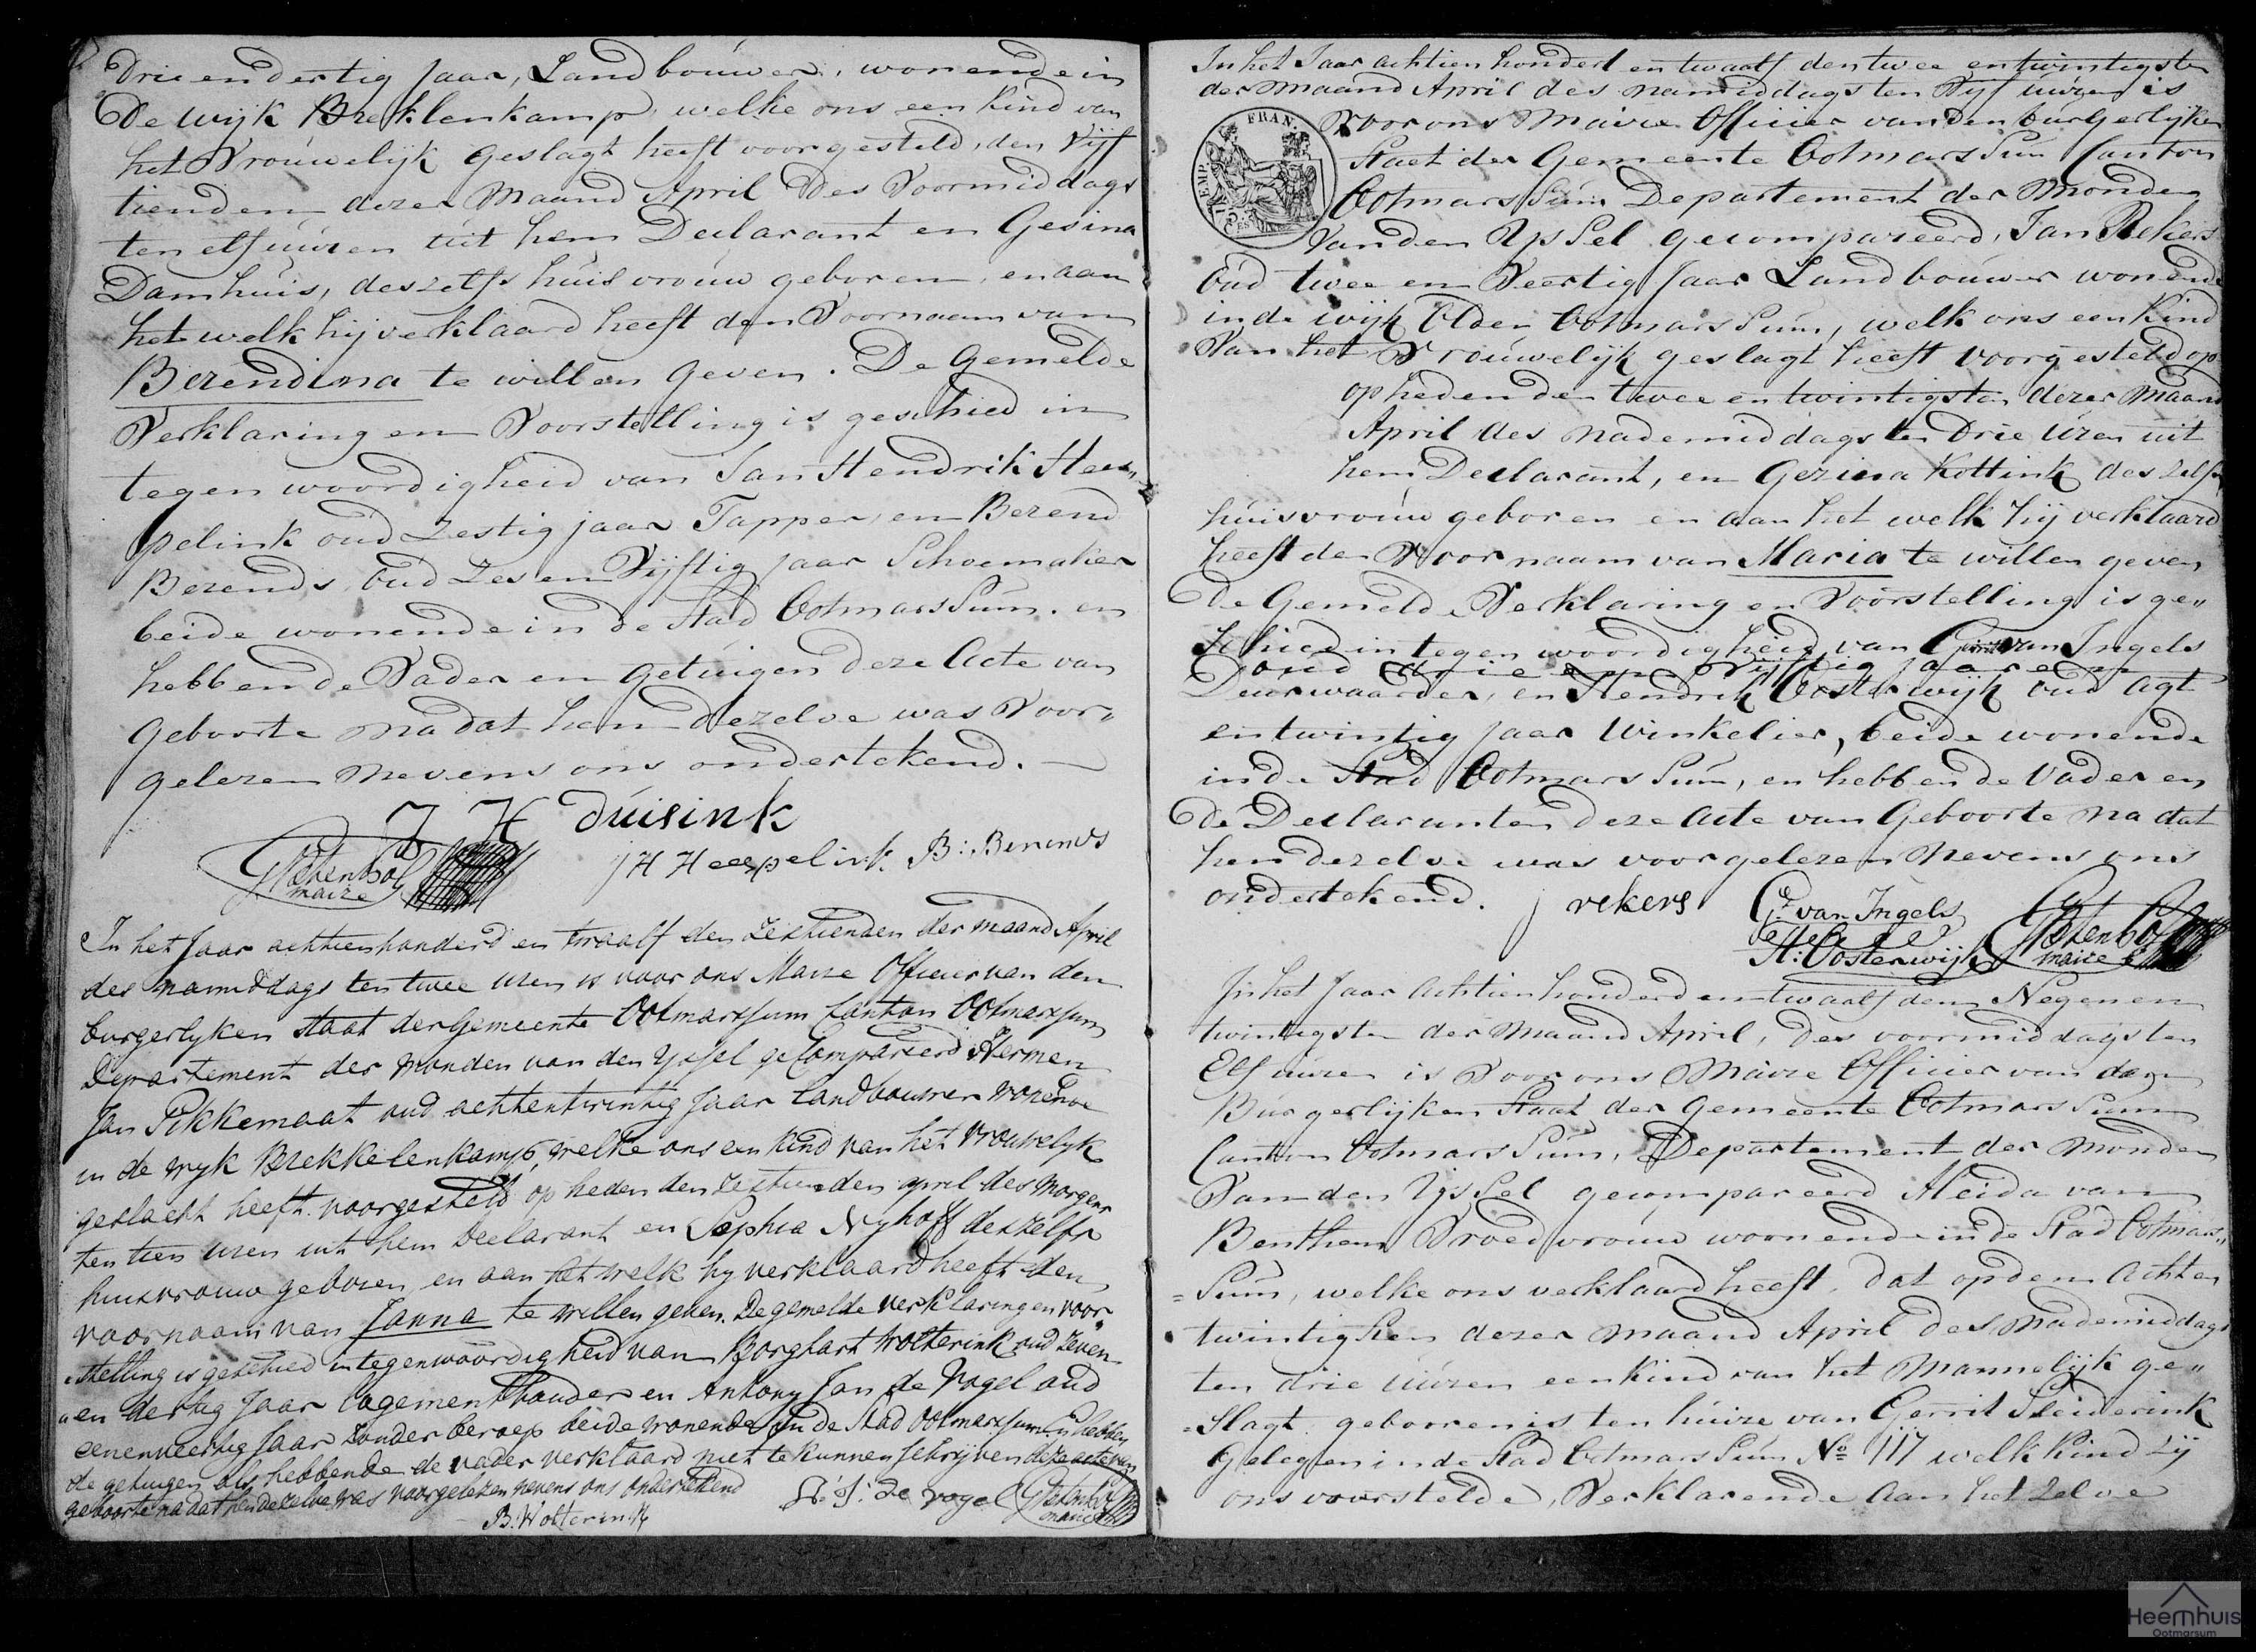 drie en dertig Jaar, Landbouwer, wonende in
De wijk Breklenkamp, welke ons een kind van
het Vrouwelijk geslagt heeft voorgesteld, den Vijf
tienden dezer Maand April des Voormiddags
ten elf uuren uit hem Declarant en Gesina
Damhuis, deszelfs huisvrouw geboren, en aan
het welk hij verklaard heeft den Voornaam van
Berendina te willen geven. De Gemelde
Verklaring en Voorstelling is geschied in
tegenwoordigheid van Jan Hendrik Hee
pelink oud zestig jaar Tapper, en Berend
Berends, oud Zes en Vijftig jaar Schoemaker
beide wonende in de Stad Ootmarssum. en
hebben de Vader en getuigen deze Acte van
Geboorte na dat hem dezelve was Voor„
gelezen Nevens ons ondertekend.
J H duisink
maire
J H Heepelink B: Berends
In het Jaar achttienhonderd en twaalf den Zestienden der maand April
des namiddags ten twee uren is voor ons Maire Officier van den
burgerlyken staat der Gemeente Ootmarssum Canton Ootmarssum
Departement der Monden van den Yssel gecompareerd Hermen
Jan Pikkemaat oud achtentwintig Jaar Landbouwer wonende
in de wyk Brekkelenkamp, welke ons een kind van het vrouwelyk
geslacht heeft voorgesteld op heden den Zestienden april des Morgens
ten tien uren uit hem Declarant en Sophia Nyhoff deszelfs
huisvrouw geboren, en aan het welk hy verklaard heeft den
voornaam van Janna te willen geven. De gemelde verklaring en voor„
„stelling is geschied in tegenwoordigheid van Borghart Wolterink oud zeven„
„en dertig Jaar Logementhouder en Antony Jan de Vogel oud
eenenveertig Jaar zonder beroep beide wonende in de Stad Ootmarssum en hebben
de getuigen als hebbende de vader verklaard niet te kunnen schryven deze acte van
geboorte na dat hen dezelve was voorgelezen nevens ons ondertekend
A: J: de vogel
maire
B. Wolterink
In het Jaar achtien honderd en twaalf den twee en twintigsten
der Maand April des namiddags ten Vyf uuren is
Voor ons Maire Officier van den burgerlyken
Staat der Gemeente Ootmarssum Canton
Ootmarssum Departement der Monden
Van den Yssel gecompareerd, Jan Rekers
FRAN.
TEMP.
Oud twee en Veertig Jaar Landbouwer wonende
in de wijk Olden Ootmarssum, welk ons een Kind
Van het Vrouwelijk geslagt heeft voorgesteld op
op heden den twee en twintigsten dezer Maand
April des nademiddags ten Drie Uren uit
hem Declarant, en Gezina Kottink des zelfs
huisvrouw geboren en aan het welk hij verklaard
heeft den Voornaam van Maria te willen geven
De Gemelde Verklaring en Voorstelling is ge„
schied in tegenwoordigheid van Gerrit van Ingels
oud drie en Vijftig jaaren
Deurwaarder, en Hendrik Oosterwijk oud agt
en twintig Jaar Winkelier, beide wonende
in de Stad Ootmarssum, en hebben de Vader en
De Declaranten deze Acte van Geboorte na dat
hen dezelve was voorgelezen Nevens ons
ondertekend. J rekers Gt van Ingels
H: Oosterwijk
maire
In het Jaar Achtien honderd en twaalf den Negen en
twintigsten der Maand April, des voormiddags ten
Elf uuren is Voor ons Maire Officier van den
Burgerlijken Staat der Gemeente Ootmarssum
Canton Ootmarssum, Departement der Monden
Van den Yssel gecompareerd Aleida van
Benthem Vroedvrouw woonende in de Stad Ootmars„
=Sum, welke ons verklaard heeft, dat op den Achten
twintigsten dezer Maand April des Nademiddags
ten drie uuren een kind van het Mannelijk ge„
=Slagt geboren is ten huize van Gerrit Sleiderink
Gelegen in de Stad Ootmarssum No 117 welk Kind zij
ons voorstelde, Verklarende Aan het zelve
Heemhuis
Ootmarsum